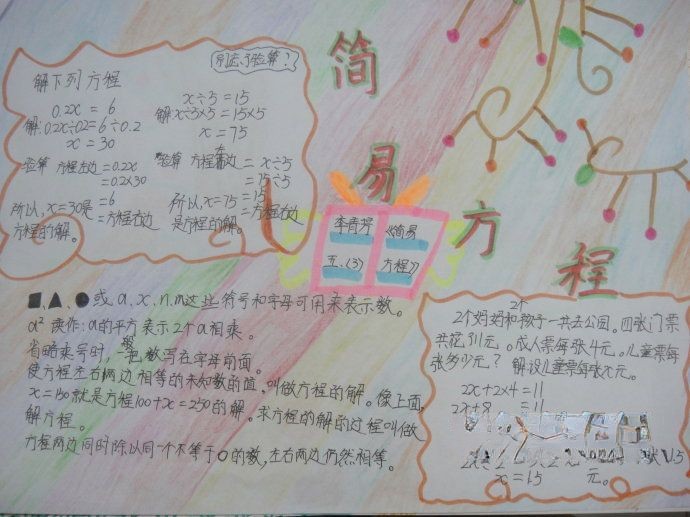 简易方程
别忘了验算!
解下列方程
0.2x = 6
解:0.2x÷0.2=6÷0.2
x = 30
验算 方程左边=0.2x
=0.2×30
=6
=方程右边
所以,x=30是
方程的解。
x÷5=15
解x÷5×5=15×5
x = 75
验算 方程左边 = x÷5
=15÷5
=15
=方程右边
所以x=75
是方程的解。
李青芳
五、(3)
《简易
方程》
■、▲、●或a、x、n、m这些符号和字母可用来表示数。
a² 读作:a的平方 表示2个a相乘。
省略乘号时,一般把数写在字母前面。
使方程左右两边相等的未知数的值,叫做方程的解。像上面,
x=150就是方程100+x=250的解。求方程的解的过程叫做
解方程。
方程两边同时除以同一个不等于0的数,左右两边仍然相等。
2个妈妈和2个孩子一共去公园。四张门票
共花11元。成人票每张4元。儿童票每
张多少元? 解设儿童票每张x元。
2x+2×4=11
2x+8 =11
x=1.5 元。